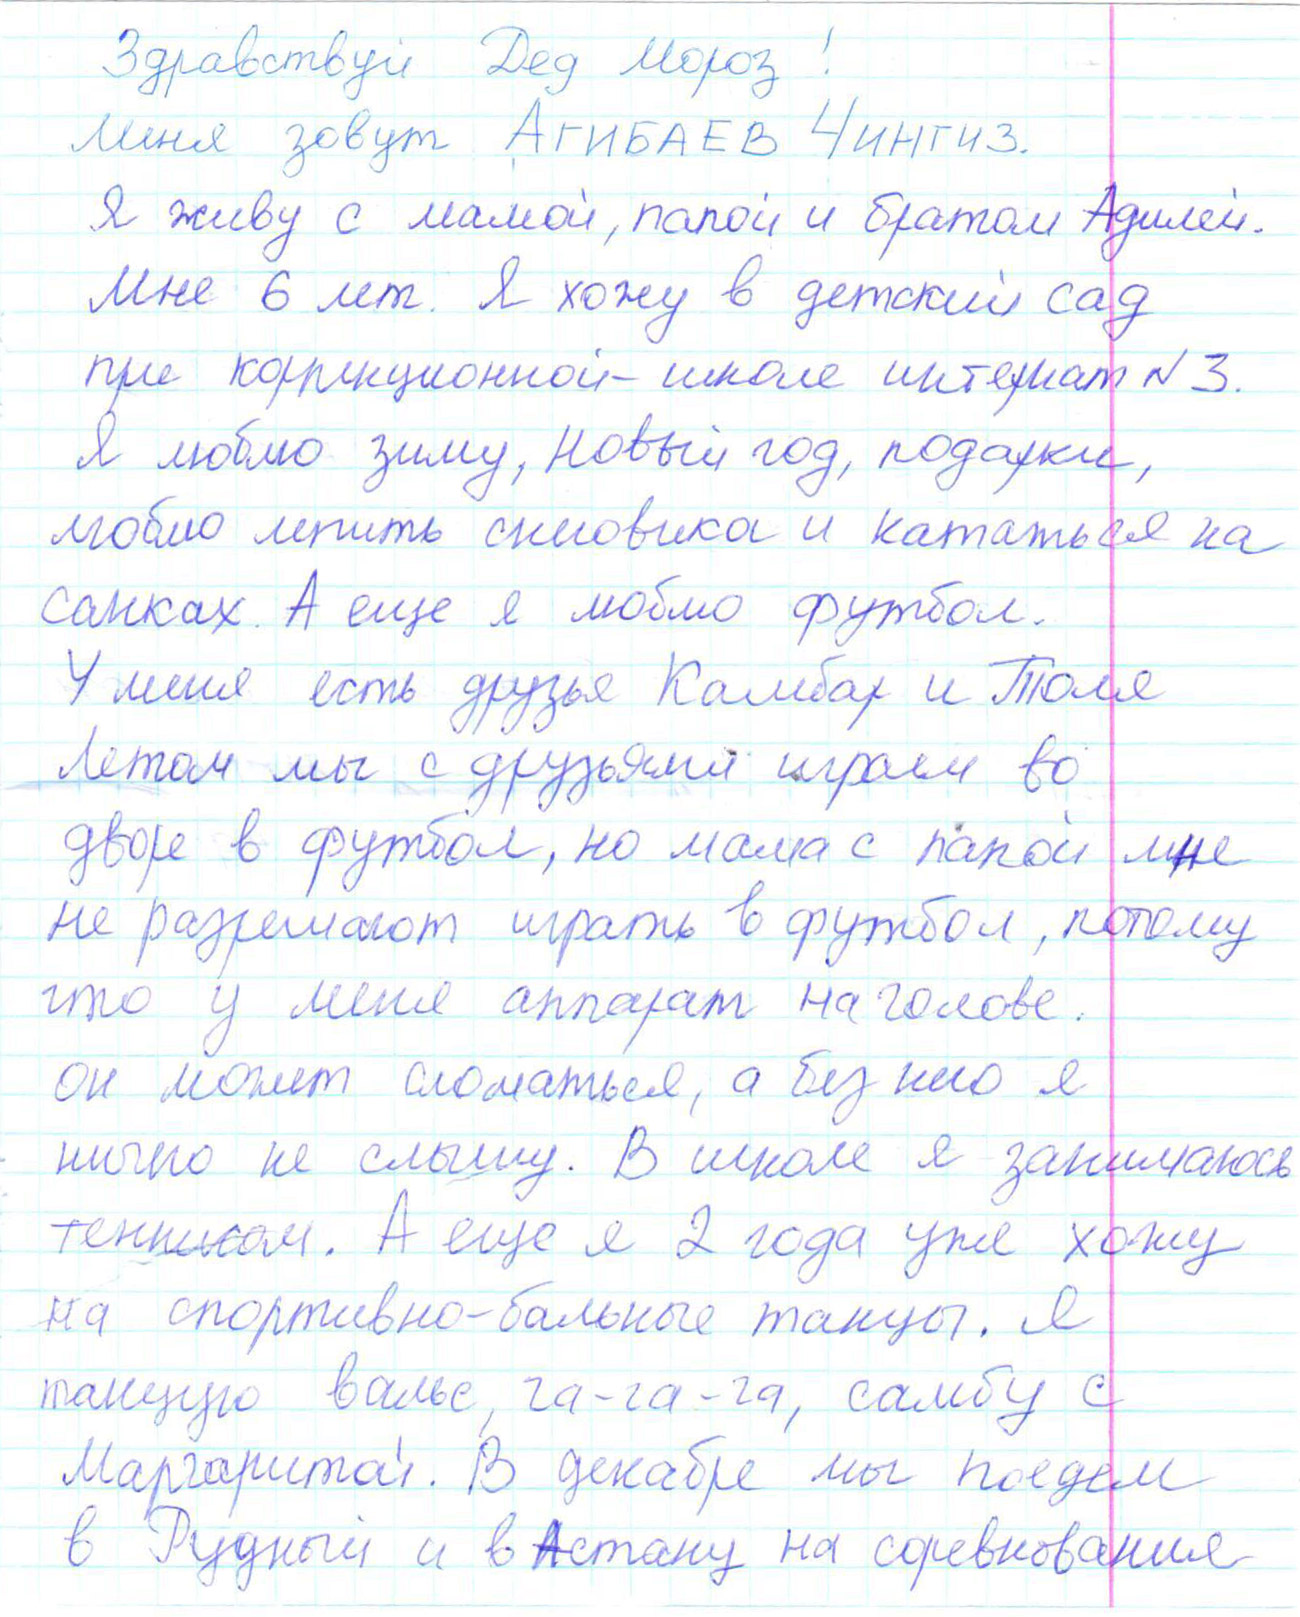 Здравствуй Дед Мороз!
Меня зовут АГИБАЕВ ЧИНГИЗ.
Я живу с мамой, папой и братом Адилей.
Мне 6 лет. Я хожу в детский сад
при коррекционной- школе интернат N 3.
Я люблю зиму, Новый год, подарки,
люблю лепить снеговика и кататься на
санках. А еще я люблю футбол.
У меня есть друзья Камбар и Толя
Летом мы с друзьями играем во
дворе в футбол, но мама с папой мне
не разрешают играть в футбол, потому
что у меня аппарат на голове.
он может сломаться, а без него я
ничего не слышу. В школе я занимаюсь
теннисом. А еще я 2 года уже хожу
на спортивно-бальные танцы. Я
танцую вальс, ча-ча-ча, самбу с
Маргаритой. В декабре мы поедем
в Рудный и в Астану на соревнования